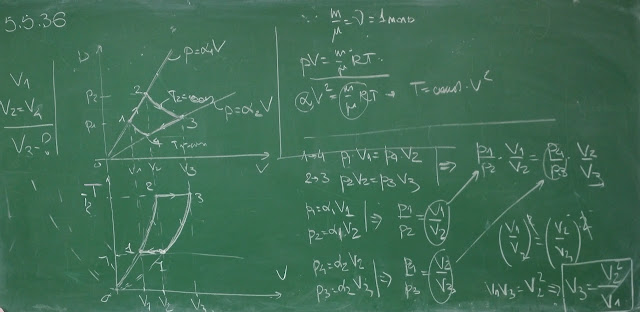 5.5.36
V₁
V₂=V₄
V₃-?
p
p₂
p₁
0
V₁ V₂ V₃ V
1
2
3
4
p=α₁V
T₂=const
p=α₂V
T
T₂
T₁
0
1
2
3
V₁ V₂ V₃ V
m/μ=ν=1моль
pV=m/μ RT
α₁V²=m/μ RT → T=const·V²
1→4 p₁V₁=p₄V₂
2→3 p₂V₂=p₃V₃
⇒ p₁/p₂·V₁/V₂=p₄/p₃·V₂/V₃
p₁=α₁V₁
p₂=α₁V₂
⇒ p₁/p₂=V₁/V₂
p₄=α₂V₂
p₃=α₂V₃
⇒ p₄/p₃=V₂/V₃
(V₁/V₂)²=(V₂/V₃)²
V₁V₃=V₂² ⇒ V₃=V₂²/V₁